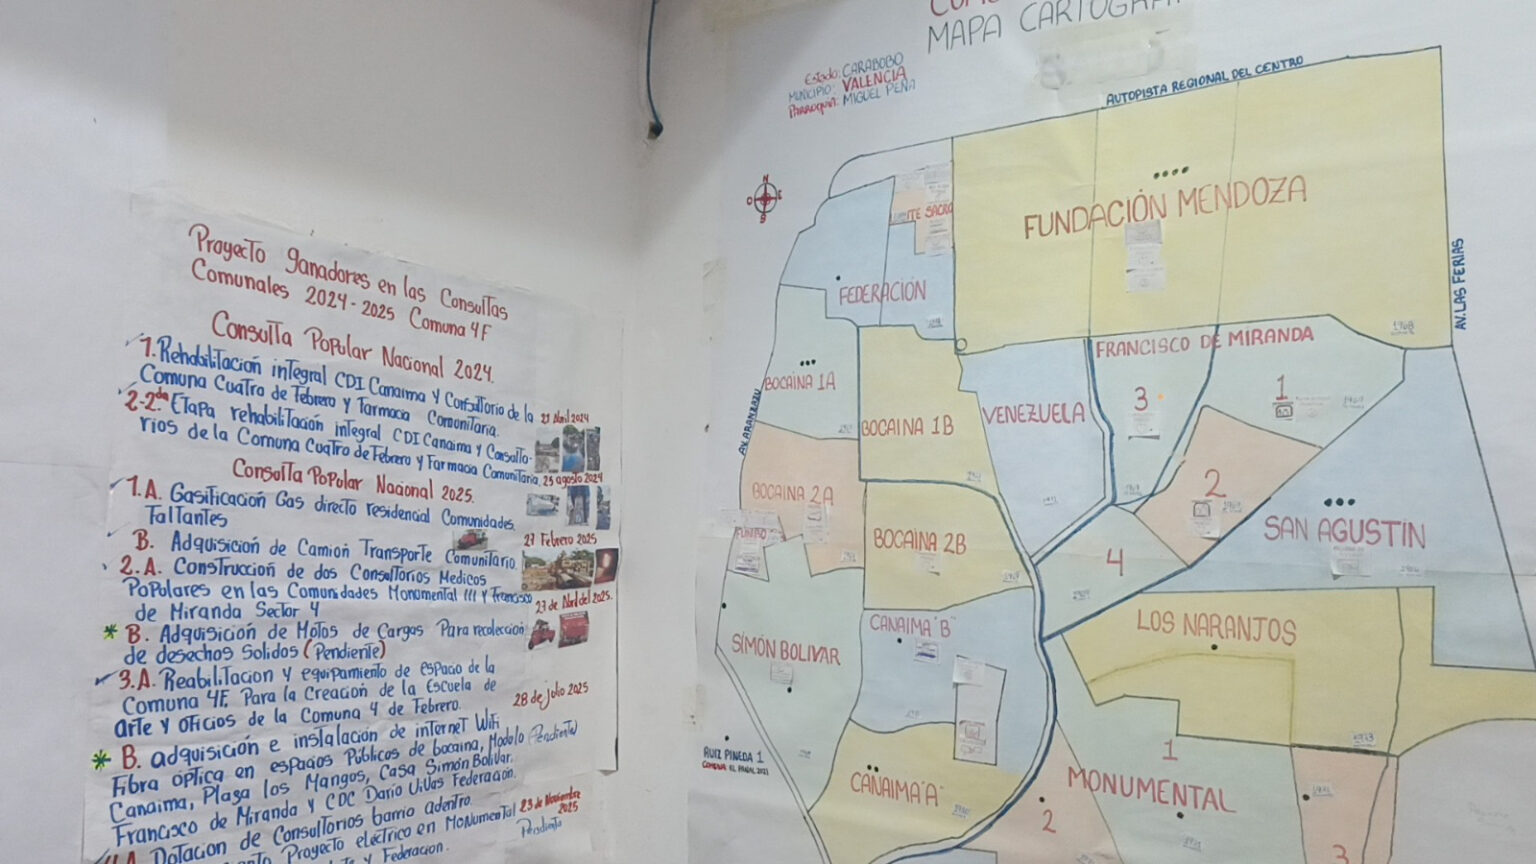 Proyecto ganadores en las Consultas
Comunales 2024-2025 Comuna 4F
Consulta Popular Nacional 2024.
1. Rehabilitación integral CDI Canaima y Consultorio de la
Comuna Cuatro de Febrero y Farmacia Comunitaria.
21 Abril 2024
2-2.da Etapa rehabilitación integral CDI Canaima y Consulto-
rios de la Comuna Cuatro de Febrero y Farmacia Comunitaria.
25 agosto 2024
Consulta Popular Nacional 2025.
1.A. Gasificación Gas directo residencial Comunidades
Faltantes
B. Adquisición de Camión Transporte Comunitario.
27 Febrero 2025
2.A. Construcción de dos Consultorios Medicos
Populares en las Comunidades Monumental III y Francisco
de Miranda Sector 4
23 de Abril del 2025.
* B. Adquisición de Motos de Cargas Para recolección
de desechos Solidos (Pendiente)
3.A. Reabilitacion y equipamiento de espacio de la
Comuna 4F. Para la Creación de la Escuela de
arte y oficios de la Comuna 4 de Febrero.
28 de julio 2025
* B. adquisición e instalación de internet Wifi
Fibra óptica en espacios Públicos de bocaina, Modulo (Pendiente)
Canaima, Plaza los Mangos, Casa Simón Bolívar.
Francisco de Miranda y CDC Dario Vivas Federación.
4.A. Dotación de Consultorios barrio adentro.
23 de Noviembre
2025
Pendiente
Proyecto eléctrico en Monumental
y Federacion.
MAPA CARTOGRAF
Estado: CARABOBO
MUNICIPIO: VALENCIA
PARROQUIA: MIGUEL PEÑA
AUTOPISTA REGIONAL DEL CENTRO
N
O E
S
FUNDACIÓN MENDOZA
AV. LAS FERIAS
TE SACRO
FEDERACIÓN
FRANCISCO DE MIRANDA
BOCAINA 1A
AV. ARANZAZU
BOCAINA 1B
VENEZUELA
3
1
2
4
BOCAINA 2A
BOCAINA 2B
SAN AGUSTIN
SIMÓN BOLIVAR
CANAIMA "B"
LOS NARANJOS
RUIZ PINEDA 1
CANAIMA "A"
1
MONUMENTAL
2
3